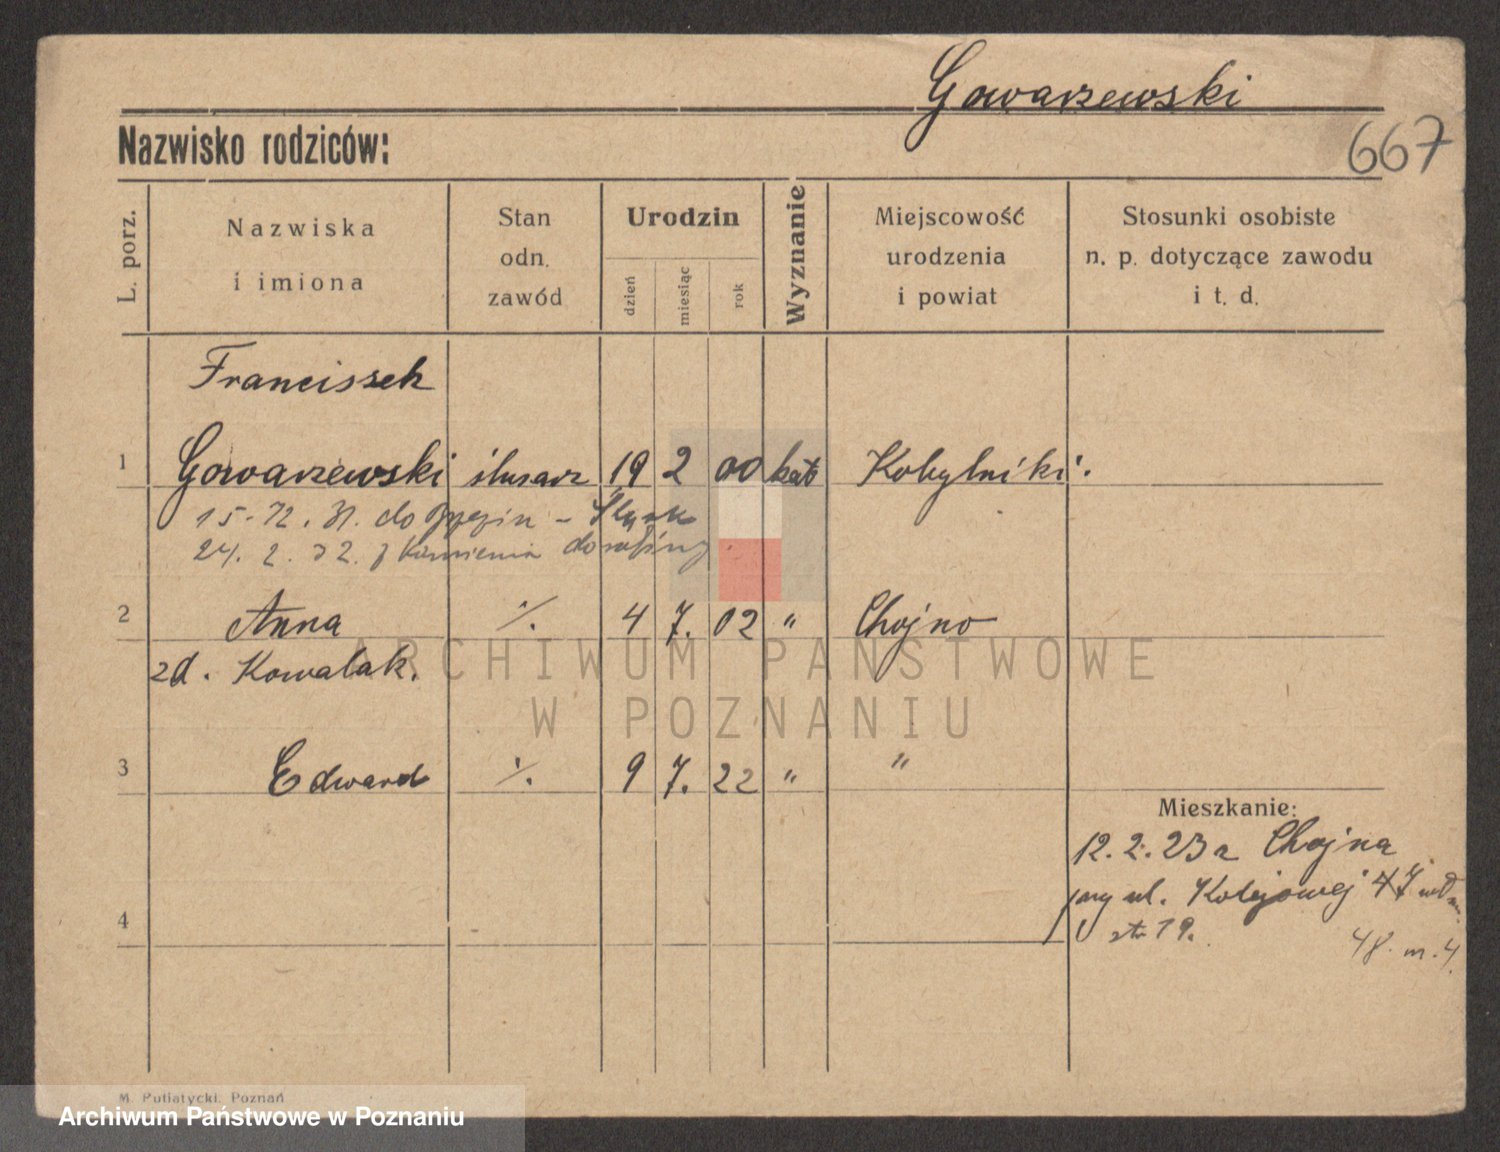 Gowarzewski
667
Nazwisko rodziców:
L. porz.
Nazwiska i imiona
Stan odn. zawód
Urodzin
dzień miesiąc rok
Wyznanie
Miejscowość urodzenia i powiat
Stosunki osobiste n. p. dotyczące zawodu i t. d.
Franciszek
1 Gowarzewski ślusarz 19 2 00 kat Kobylniki.
15-12. 31. do - Śląsk
24. 2. 32. z Kamienia
2 Anna ·/. 4 7. 02 " Chojno
zd. Kowalak.
3 Edward ·/. 9 7. 22 " "
Mieszkanie:
12. 2. 23 z Chojna
przy ul. Kolejowej 47
4 str 19.
48. m. 4.
ARCHIWUM PAŃSTWOWE
W POZNANIU
M. Putiatycki, Poznań
Archiwum Państwowe w Poznaniu